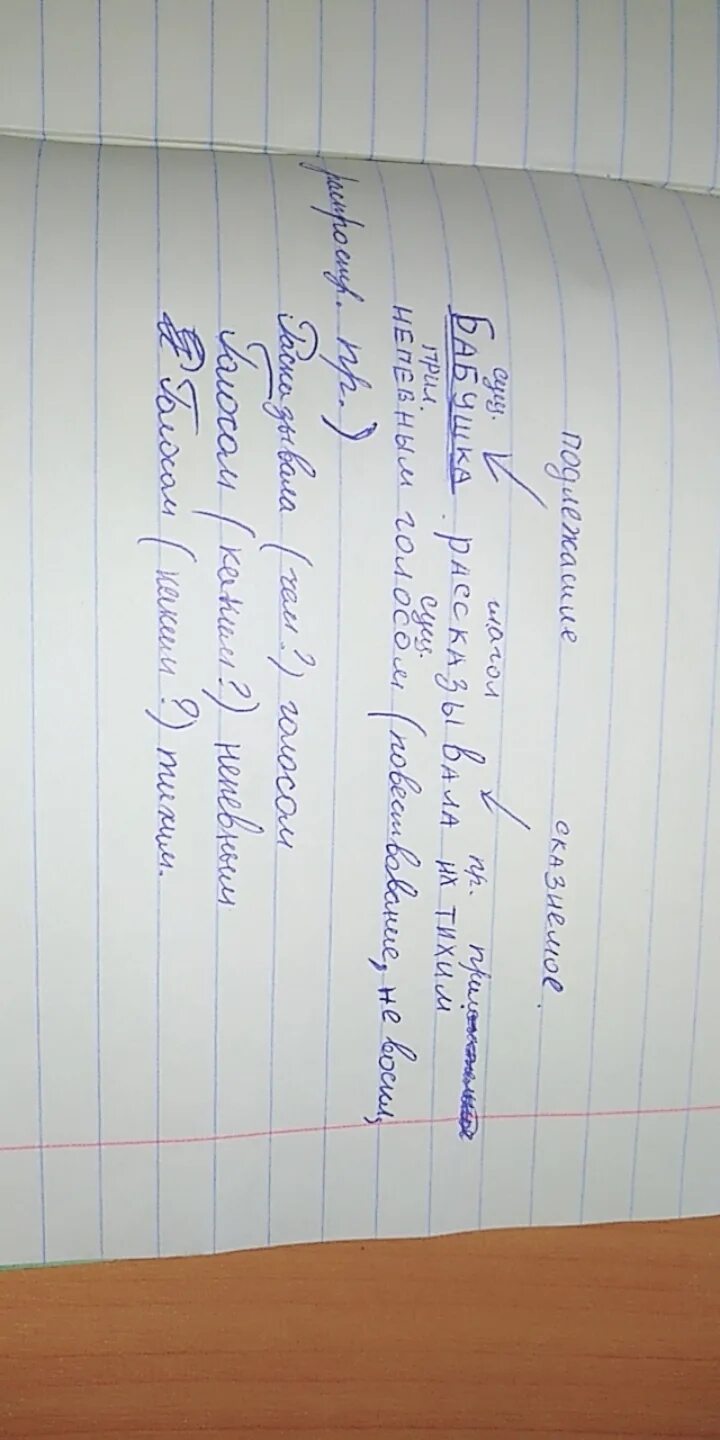 подлежащие сказуемое.
сущ. глагол пр. прил
БАБУШКА рассказывала их тихим
прил. сущ.
непевным голосом (повествование, не воскл,
распростр. пр.)
Расказывала (чем?) голосом
Голосом (каким?) непевным
Голосом (каким?) тихим.